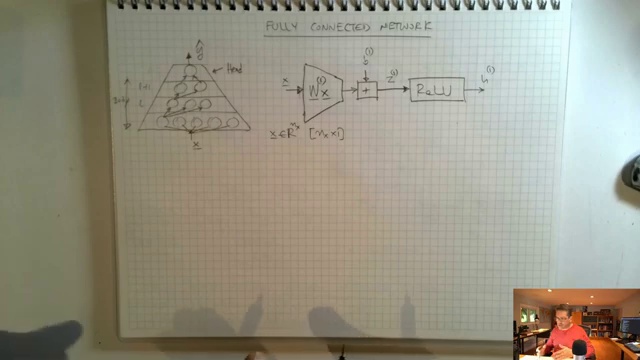 FULLY CONNECTED NETWORK
ŷ
Head
l+1
l
x
x
W⁽¹⁾x
b⁽¹⁾
+
z⁽¹⁾
ReLU
h⁽¹⁾
x ∈ R^nx [nx×1]